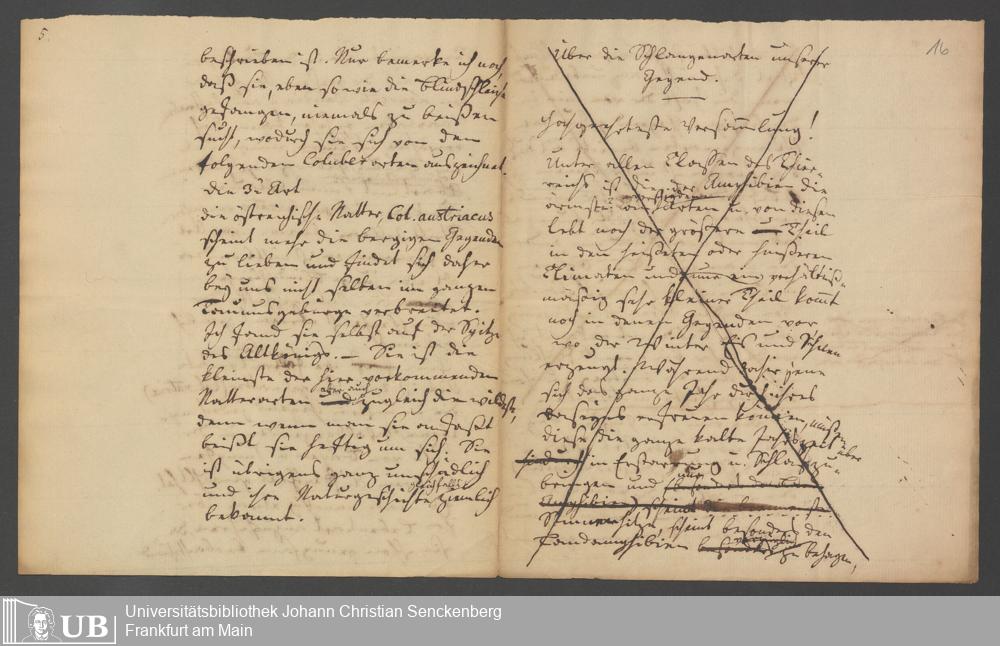 5.
beschrieben ist. Nur bemerke ich noch,
daß sie, eben so wie die Blindschleiche
gefangen, niemals zu beißen
sucht, wodurch sie sich von den
folgenden Coluber arten auszeichnet.
Die 3te Art
die östreichische Natter, Col. austriacus
scheint mehr die bergigen Gegenden
zu lieben und findet sich daher
bey uns nicht selten im ganzen
Taunusgebürge verbreitet.
Ich fand sie selbst auf der Spitze
des Altkönigs. – Sie ist die
kleinste der hier vorkommenden
Natterarten aber auch zugleich die wildeste,
denn wenn man sie anfaßt
beißt sie heftig um sich. Sie
ist übrigens ganz unschädlich
und ihre Naturgeschichte gleichfalls ziemlich
bekannt.
16
Über die Schlangenarten unserer
Gegend.
Hochgeehrteste Versammlung!
Unter allen Classen des Thier-
reichs ist die der Amphibien die
ärmste an Arten u. von diesen
lebt noch der größere Theil
in den heißesten oder heißeren
Climaten und nur ein verhältniß-
mäßig sehr kleiner Theil kommt
noch in denen Gegenden vor
wo der Winter Eis und Schnee
erzeugt. Während daher jene
sich das ganze Jahr durch ihres
Daseyns erfreuen können, müssen
diese die ganze kalte Jahrszeit über
in Erstarrung u. Schlaf zu-
bringen und nur
Amphibien scheint die
Sommerhitze scheint besonders den
Landamphibien zu behagen,
UB
Universitätsbibliothek Johann Christian Senckenberg
Frankfurt am Main